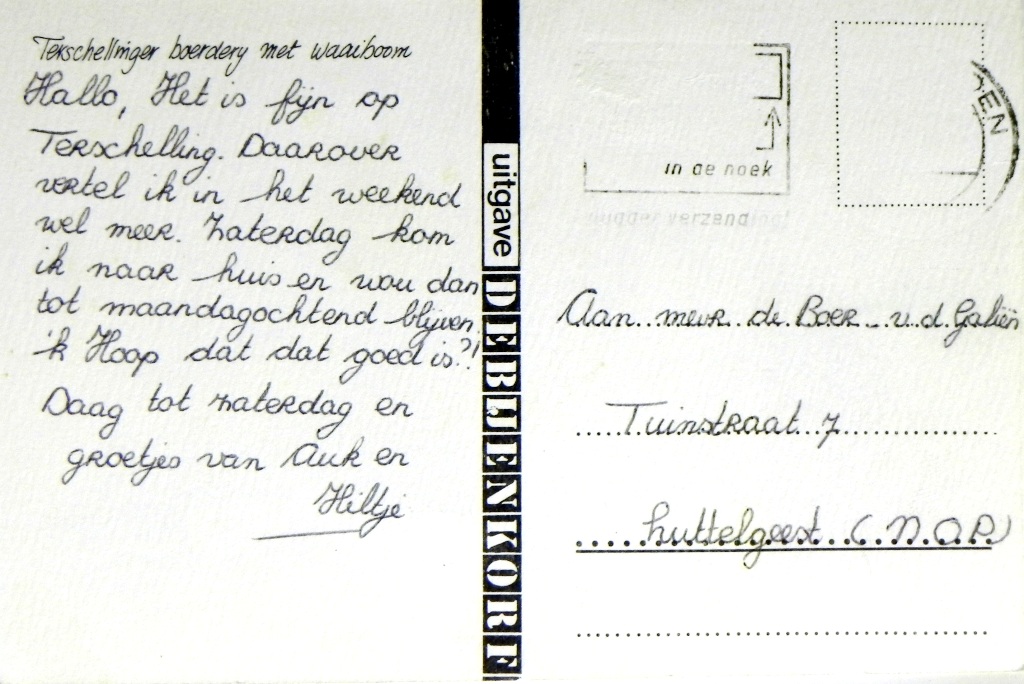 Terschellinger boerdery met waaiboom
Hallo, Het is fijn op
Terschelling. Daarover
vertel ik in het weekend
wel meer. Zaterdag kom
ik naar huis en wou dan
tot maandagochtend blijven.
ik Hoop dat dat goed is?!
Daag tot zaterdag en
groetjes van Auk en
Hiltje
uitgave DE BIJENKORF
in de hoek
verzend
EN
Aan mevr. de Boer - v.d. Galiën
Tuinstraat 7
Luttelgeest (N.O.P.)